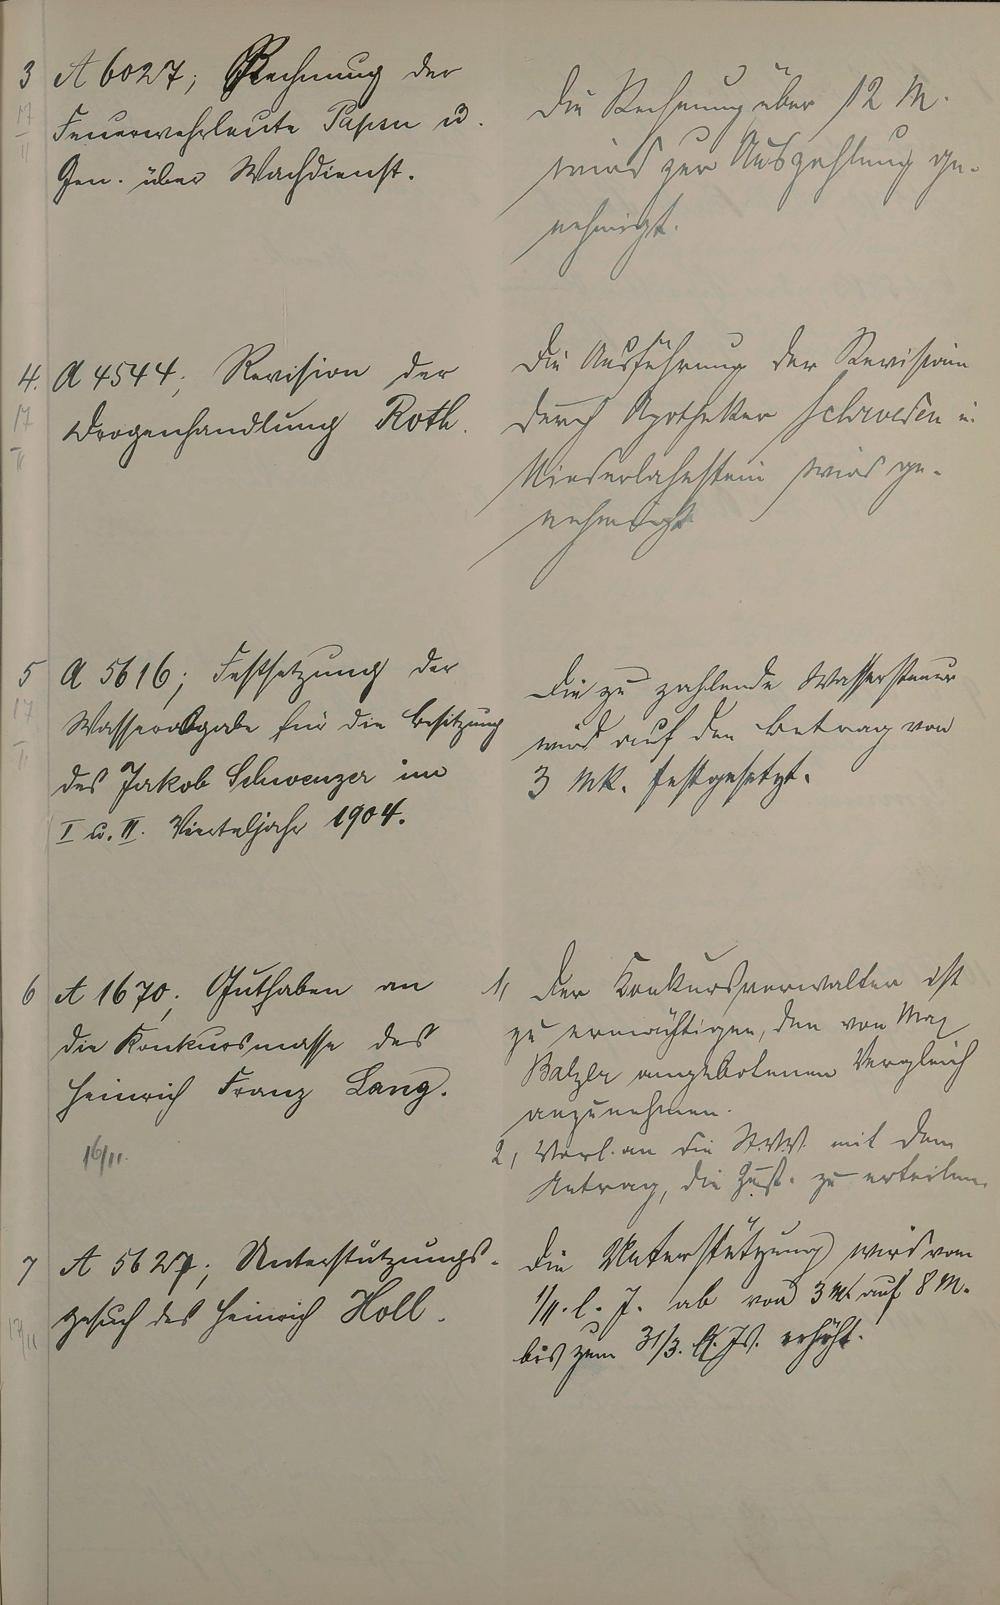 3 A 6027; Rechnung der
17/11 Feuerwehrleute Papen u.
Gen. über Wachdienst.
Die Rechnung über 12 M.
wird zur Auszahlung ge-
nehmigt.
4. A 4544; Revision der
17/11 Drogenhandlung Roth.
Die Ausführung der Revision
durch Apotheker Schweden in
Niederlahnstein wird ge-
nehmigt
5 A 5616; Festsetzung der
17/11 Wasserabgabe für die Besitzung
des Jakob Schwenzer im
I u. II. Vierteljahr 1904.
Die zu zahlende Wassersteuer
wird auf den Betrag von
3 Mk. festgesetzt.
6 A 1670; Guthaben an
die Konkursmasse des
Heinrich Franz Lang.
16/11.
1, Der Konkursverwalter ist
zu ermächtigen, den von Max
Balzer angebotenen Vergleich
anzunehmen.
2, Vorl. an die St.V.V. mit dem
Antrag, die Zust. zu erteilen.
7 A 5627; Unterstützungs-
17/11 gesuch des Heinrich Holl.
Die Unterstützung wird vom
1/11. l. J. ab von 3 M auf 8 M.
bis zum 31/3. Js. erhöht.